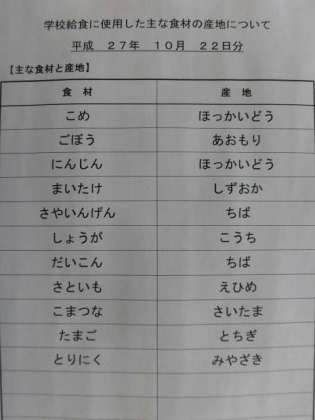 学校給食に使用した主な食材の産地について
平成 27年 10月 22日分
【主な食材と産地】
食 材 産 地
こめ ほっかいどう
ごぼう あおもり
にんじん ほっかいどう
まいたけ しずおか
さやいんげん ちば
しょうが こうち
だいこん ちば
さといも えひめ
こまつな さいたま
たまご とちぎ
とりにく みやざき